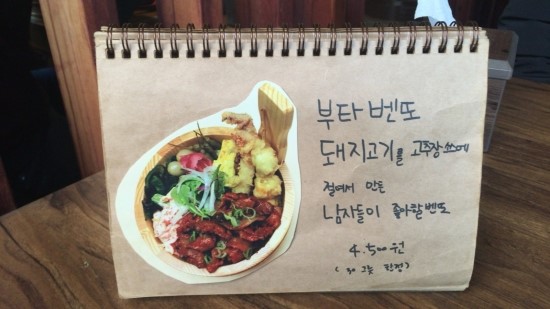 부타 벤또
돼지고기를 고추장 소스에
절여서 만든
남자들이 좋아할 벤또
4.500원
(30그릇 한정)